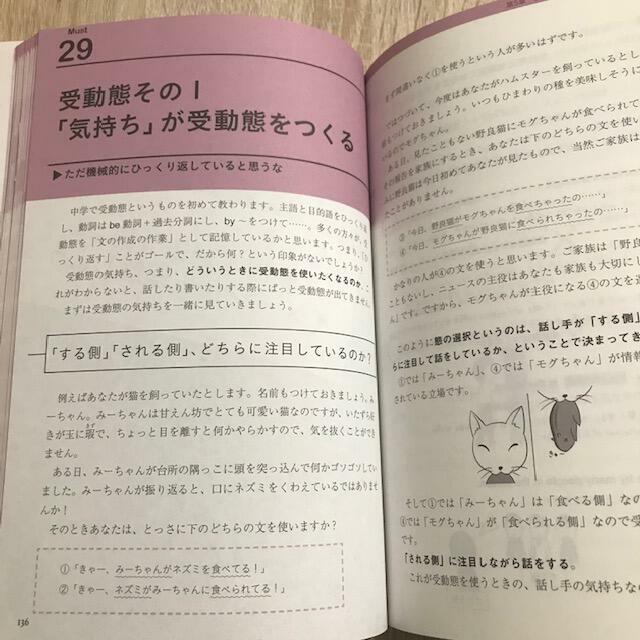 Must
29
受動態その1
「気持ち」が受動態をつくる
▶ただ機械的にひっくり返していると思うな
中学で受動態というものを初めて教わります。主語と目的語をひっくり返
し、動詞は be 動詞＋過去分詞にし、by 〜をつけて……。多くの方々が、受
動態を「文の作成の作業」として記憶しているかと思います。つまり、「ひ
っくり返す」ことがゴールで、だから何？という印象がないでしょうか？
受動態の気持ち、つまり、どういうときに受動態を使いたくなるのか、こ
れがわからないと、話したり書いたりする際にぱっと受動態が出てきません。
まずは受動態の気持ちを一緒に見ていきましょう。
「する側」「される側」、どちらに注目しているのか？
例えばあなたが猫を飼っていたとします。名前もつけておきましょう。み
ーちゃん。みーちゃんは甘えん坊でとても可愛い猫なのですが、いたずら好
きが玉に瑕で、ちょっと目を離すと何かやらかすので、気を抜くことができ
きず
ません。
ある日、みーちゃんが台所の隅っこに頭を突っ込んで何かゴソゴソしてい
ました。みーちゃんが振り返ると、口にネズミをくわえているではありませ
んか！
そのときあなたは、とっさに下のどちらの文を使いますか？
①「きゃー、みーちゃんがネズミを食べてる！」
②「きゃー、ネズミがみーちゃんに食べられてる！」
136
第5章
まず間違いなく①を使うという人が多いはずです。
ではつづいて、今度はあなたがハムスターを飼っているとし
前もつけておきましょう。いつもひまわりの種を美味しそうに
いるのでモグちゃん。
ある日、見たこともない野良猫にモグちゃんが食べられて
その報告を家族にするとき、あなたは下のどちらの文を使い
みに野良猫は今日初めてあなたが見たもので、当然ご家族は
たことがありません。
③「今日、野良猫がモグちゃんを食べちゃったの……」
④「今日、モグちゃんが野良猫に食べられちゃったの……」
かなりの人が④の文を使うと思います。ご家族は「野良
こともないし、ニュースの主役はあなたも家族も大切にし
ん」です。ですから、モグちゃんが主役になる④の文を選
このように態の選択というのは、話し手が「する側」
らに注目して話をしているか、ということで決まってき
①では「みーちゃん」、④では「モグちゃん」が情報
されている立場です。
そして①では「みーちゃん」は「食べる側」なの
④では「モグちゃん」が「食べられる側」なので受
です。
「される側」に注目しながら話をする。
これが受動態を使うときの、話し手の気持ちな